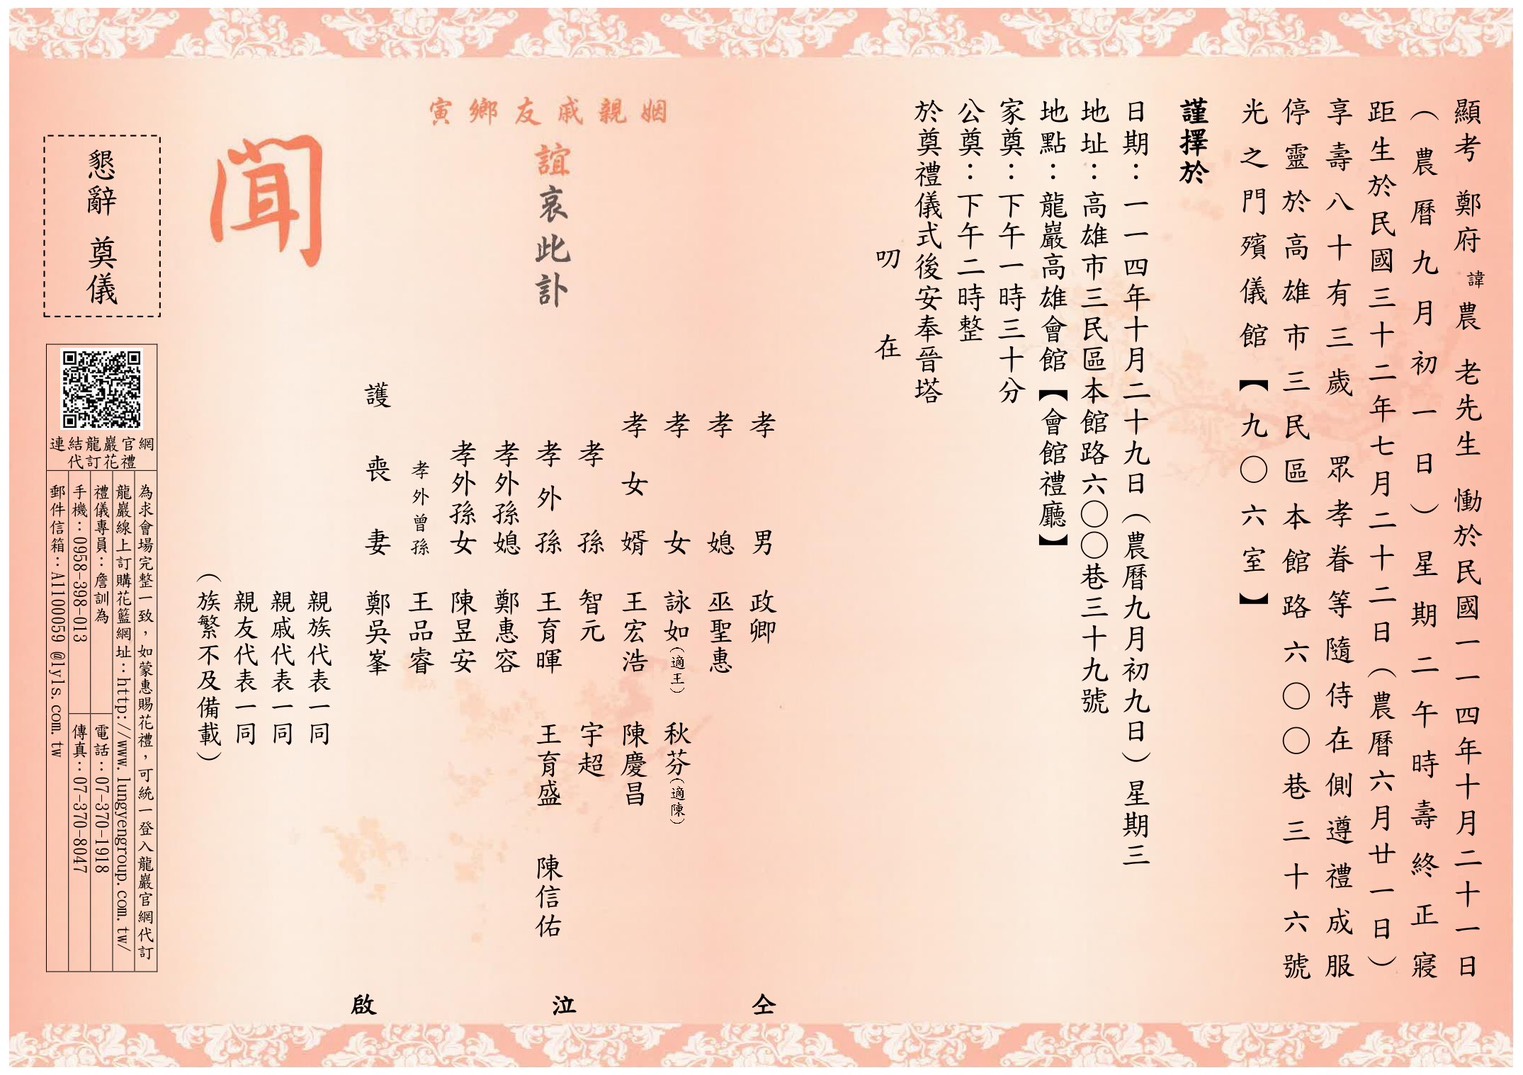 顯考 鄭府 諱農 老先生 慟於民國一一四年十月二十一日
（農曆九月初一日）星期二午時壽終正寢
距生於民國三十二年七月二十二日（農曆六月廿一日）
享壽八十有三歲 眾孝眷等隨侍在側遵禮成服
停靈於高雄市三民區本館路六〇〇巷三十六號
光之門殯儀館【九〇六室】
謹擇於
日期：一一四年十月二十九日（農曆九月初九日）星期三
地址：高雄市三民區本館路六〇〇巷三十九號
地點：龍巖高雄會館【會館禮廳】
家奠：下午一時三十分
公奠：下午二時整
於奠禮儀式後安奉晉塔
叨 在
姻親戚友鄉寅
誼哀此訃
聞
孝男 政卿
孝媳 巫聖惠
孝女 詠如（適王） 秋芬（適陳）
孝女婿 王宏浩 陳慶昌
孝孫 智元 宇超
孝外孫 王育暉 王育盛 陳信佑
孝外孫媳 鄭惠容
孝外孫女 陳昱安
孝外曾孫 王品睿
護喪妻 鄭吳峯
親族代表一同
親戚代表一同
親友代表一同
（族繁不及備載）
仝
泣
啟
懇辭 奠儀
連結龍巖官網
代訂花禮
為求會場完整一致，如蒙惠賜花禮，可統一登入龍巖官網代訂
龍巖線上訂購花籃網址：http://www.lungyengroup.com.tw/
禮儀專員：詹訓為
電話：07-370-1918
手機：0958-398-013
傳真：07-370-8047
郵件信箱：A1100059@lyls.com.tw